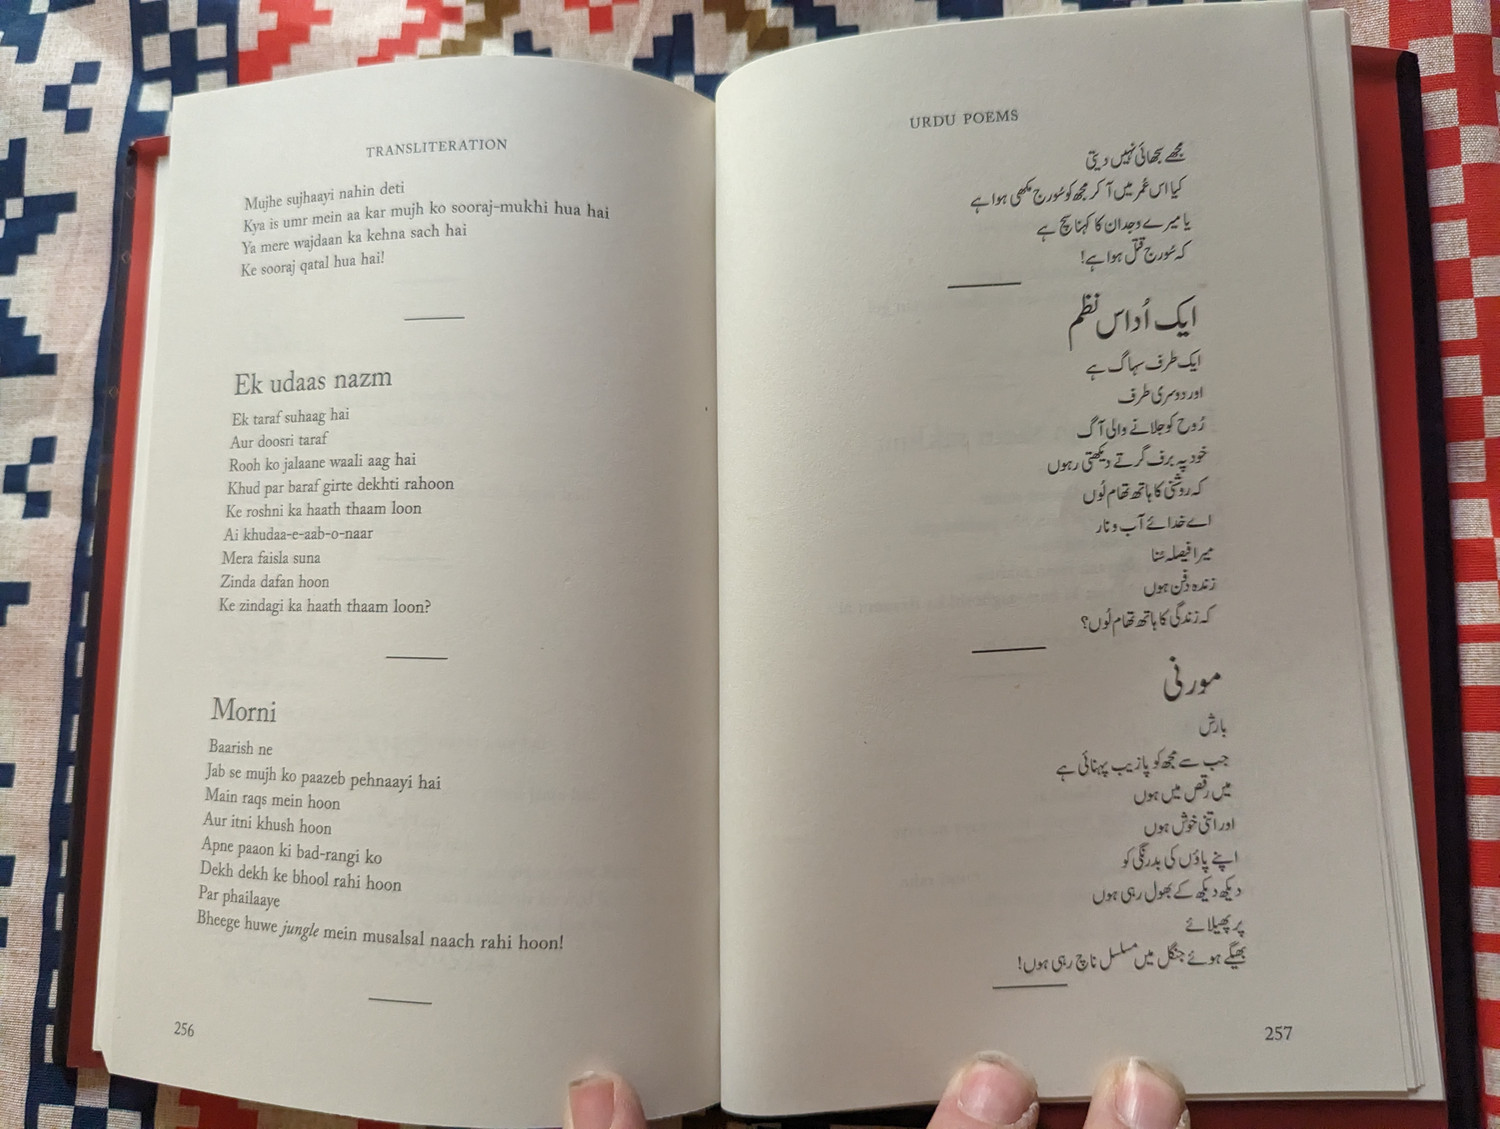 TRANSLITERATION
Mujhe sujhaayi nahin deti
Kya is umr mein aa kar mujh ko sooraj-mukhi hua hai
Ya mere wajdaan ka kehna sach hai
Ke sooraj qatal hua hai!
Ek udaas nazm
Ek taraf suhaag hai
Aur doosri taraf
Rooh ko jalaane waali aag hai
Khud par baraf girte dekhti rahoon
Ke roshni ka haath thaam loon
Ai khudaa-e-aab-o-naar
Mera faisla suna
Zinda dafan hoon
Ke zindagi ka haath thaam loon?
Morni
Baarish ne
Jab se mujh ko paazeb pehnaayi hai
Main raqs mein hoon
Aur itni khush hoon
Apne paaon ki bad-rangi ko
Dekh dekh ke bhool rahi hoon
Par phailaaye
Bheege huwe jungle mein musalsal naach rahi hoon!
256
URDU POEMS
مجھے سجھائی نہیں دیتی
کیا اس عُمر میں آ کر مجھ کو سُورج مکھی ہوا ہے
یا میرے وجدان کا کہنا سچ ہے
کہ سُورج قتل ہوا ہے!
ایک اُداس نظم
ایک طرف سہاگ ہے
اور دوسری طرف
رُوح کو جلانے والی آگ
خود پہ برف گرتے دیکھتی رہوں
کہ روشنی کا ہاتھ تھام لُوں
اے خدائے آب و نار
میرا فیصلہ سُنا
زندہ دفن ہوں
کہ زندگی کا ہاتھ تھام لُوں؟
مورنی
بارش
جب سے مجھ کو پازیب پہنائی ہے
میں رقص میں ہوں
اور اتنی خوش ہوں
اپنے پاؤں کی بدرنگی کو
دیکھ دیکھ کے بھول رہی ہوں
پر پھیلائے
بھیگے ہوئے جنگل میں مسلسل ناچ رہی ہوں!
257